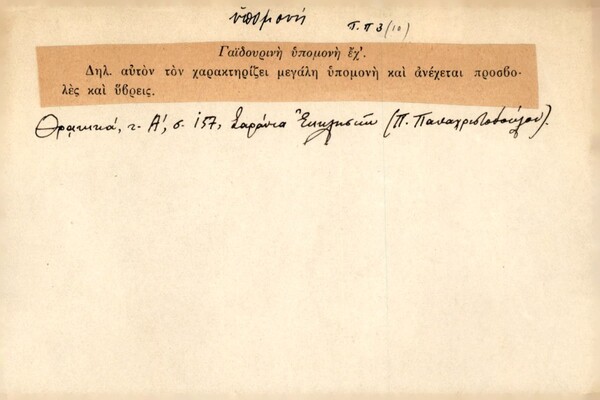 ὑπομονή Π.Π 3 (10)
Γαϊδουρινὴ ὑπομονὴ ἔχ'.
Δηλ. αὐτὸν τὸν χαρακτηρίζει μεγάλη ὑπομονὴ καὶ ἀνέχεται προσβο-
λὲς καὶ ὕβρεις.
Θρᾳκικά, τ. Α', σ. 157, Σαράντα Ἐκκλησιῶν (Π. Παπαχριστοδούλου).